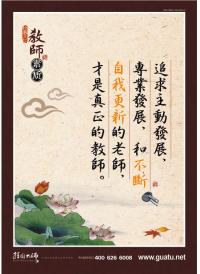 教師
素质
追求主動發展、
專業發展、和不斷
自我更新的老師，
才是真正的教師。
400 626 6008
www.guatu.net